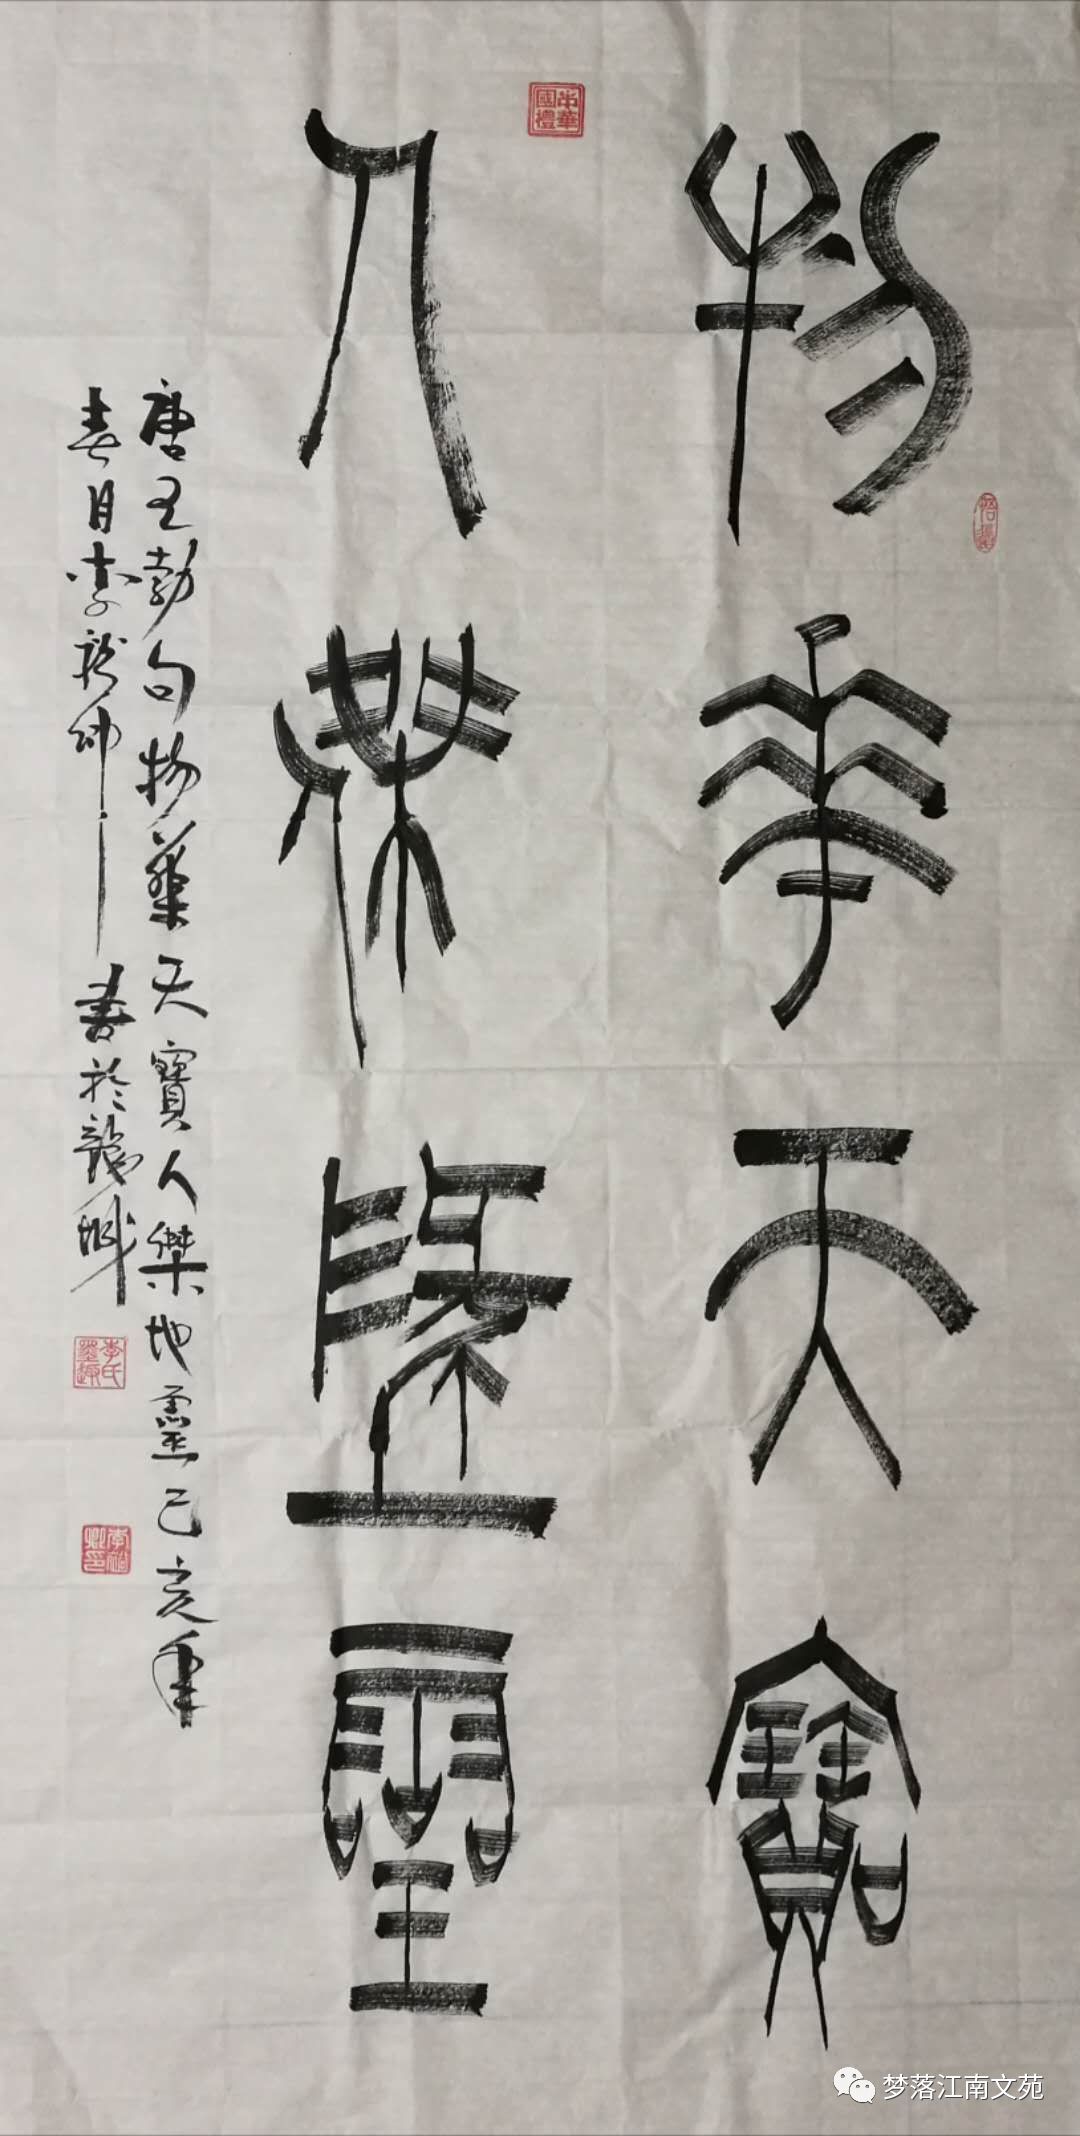 物華天寶
人傑地靈
唐王勃句物華天寶人傑地靈己亥年
春月李
書於龍城
中華國禮
李氏墨趣
梦落江南文苑